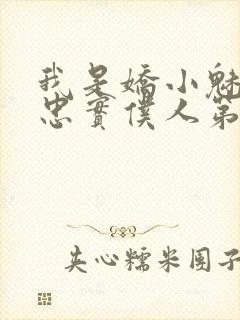 我是嬌小魅
忠實僕人第
夹心糯米团子